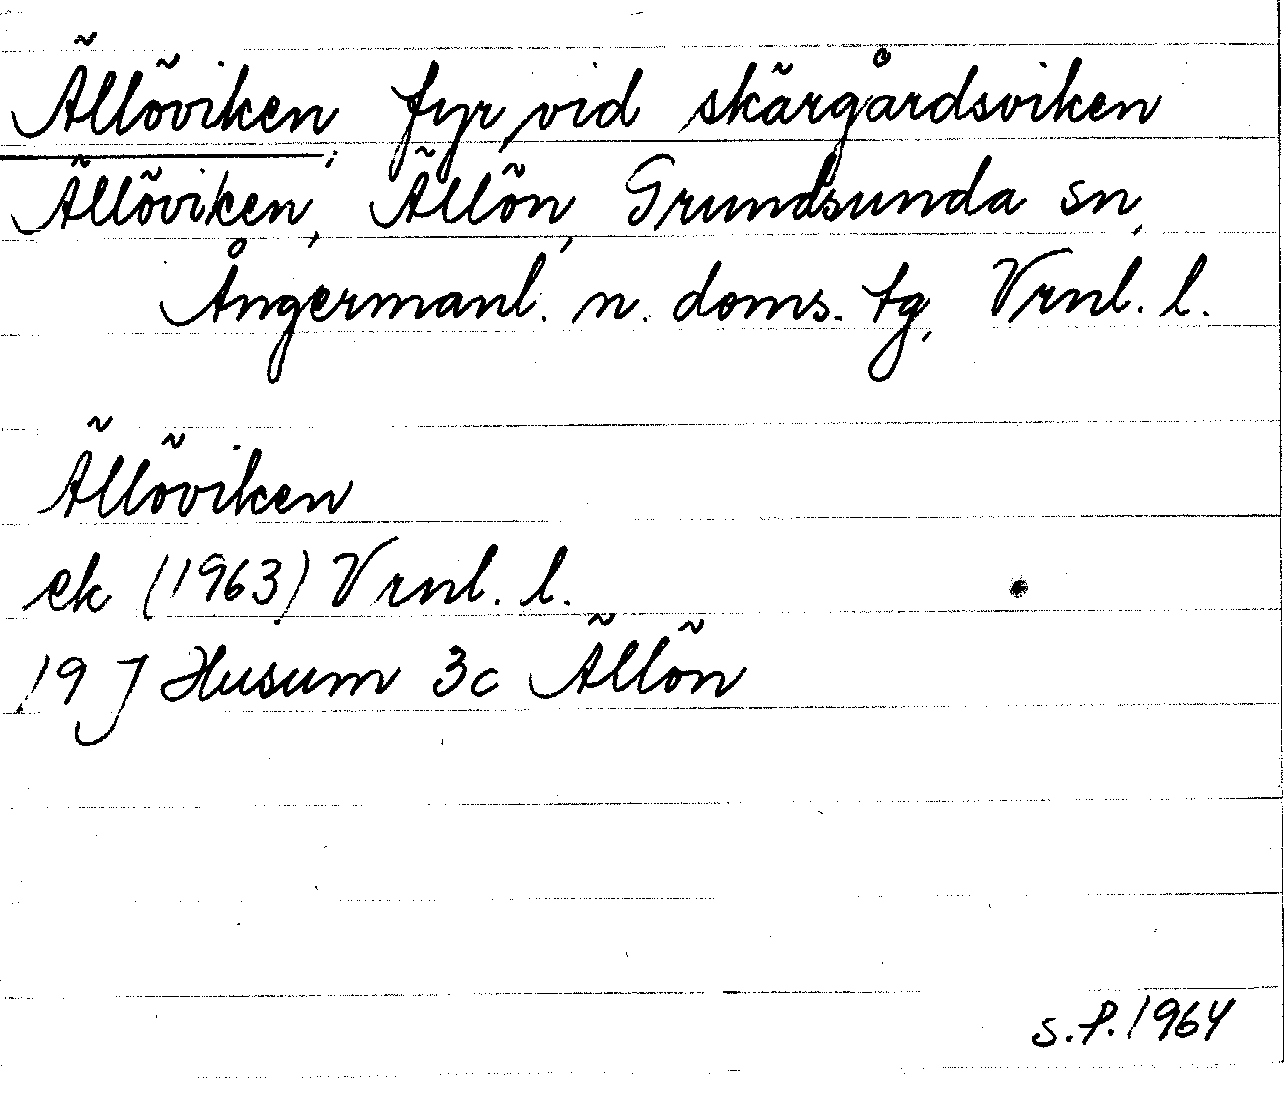 Ällöviken, fyr vid skärgårdsviken
Ällöviken, Ällön, Grundsunda sn,
Ångermanl. n. doms. tg, Vrnl. l.
Ällöviken
ek (1963) Vrnl. l.
19 J Husum 3c Ällön
S.P. 1964